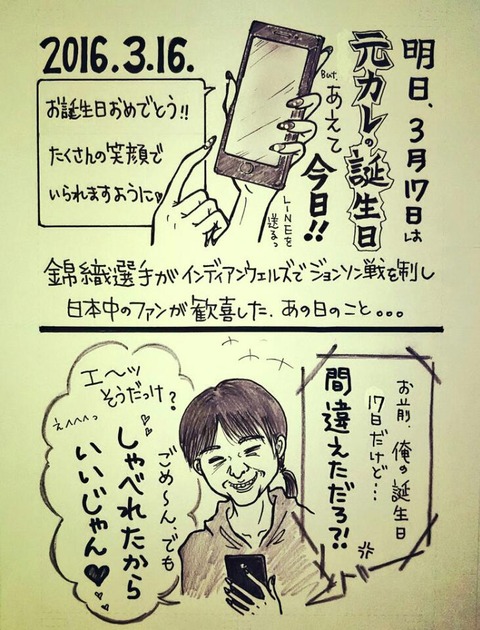 2016.3.16.
明日、3月17日は
元カレの誕生日
But,
あえて
今日!!
LINEを
送るっ
お誕生日おめでとう!!
たくさんの笑顔で
いられますように♥
錦織選手がインディアンウェルズでジョンソン戦を制し
日本中のファンが歓喜した、あの日のこと。。。
お前、俺の誕生日
17日だけど…
間違えただろ?!
エ〜ッ
そうだっけ?
えへへへっ
ごめ〜ん、でも
しゃべれたから
いいじゃん♥